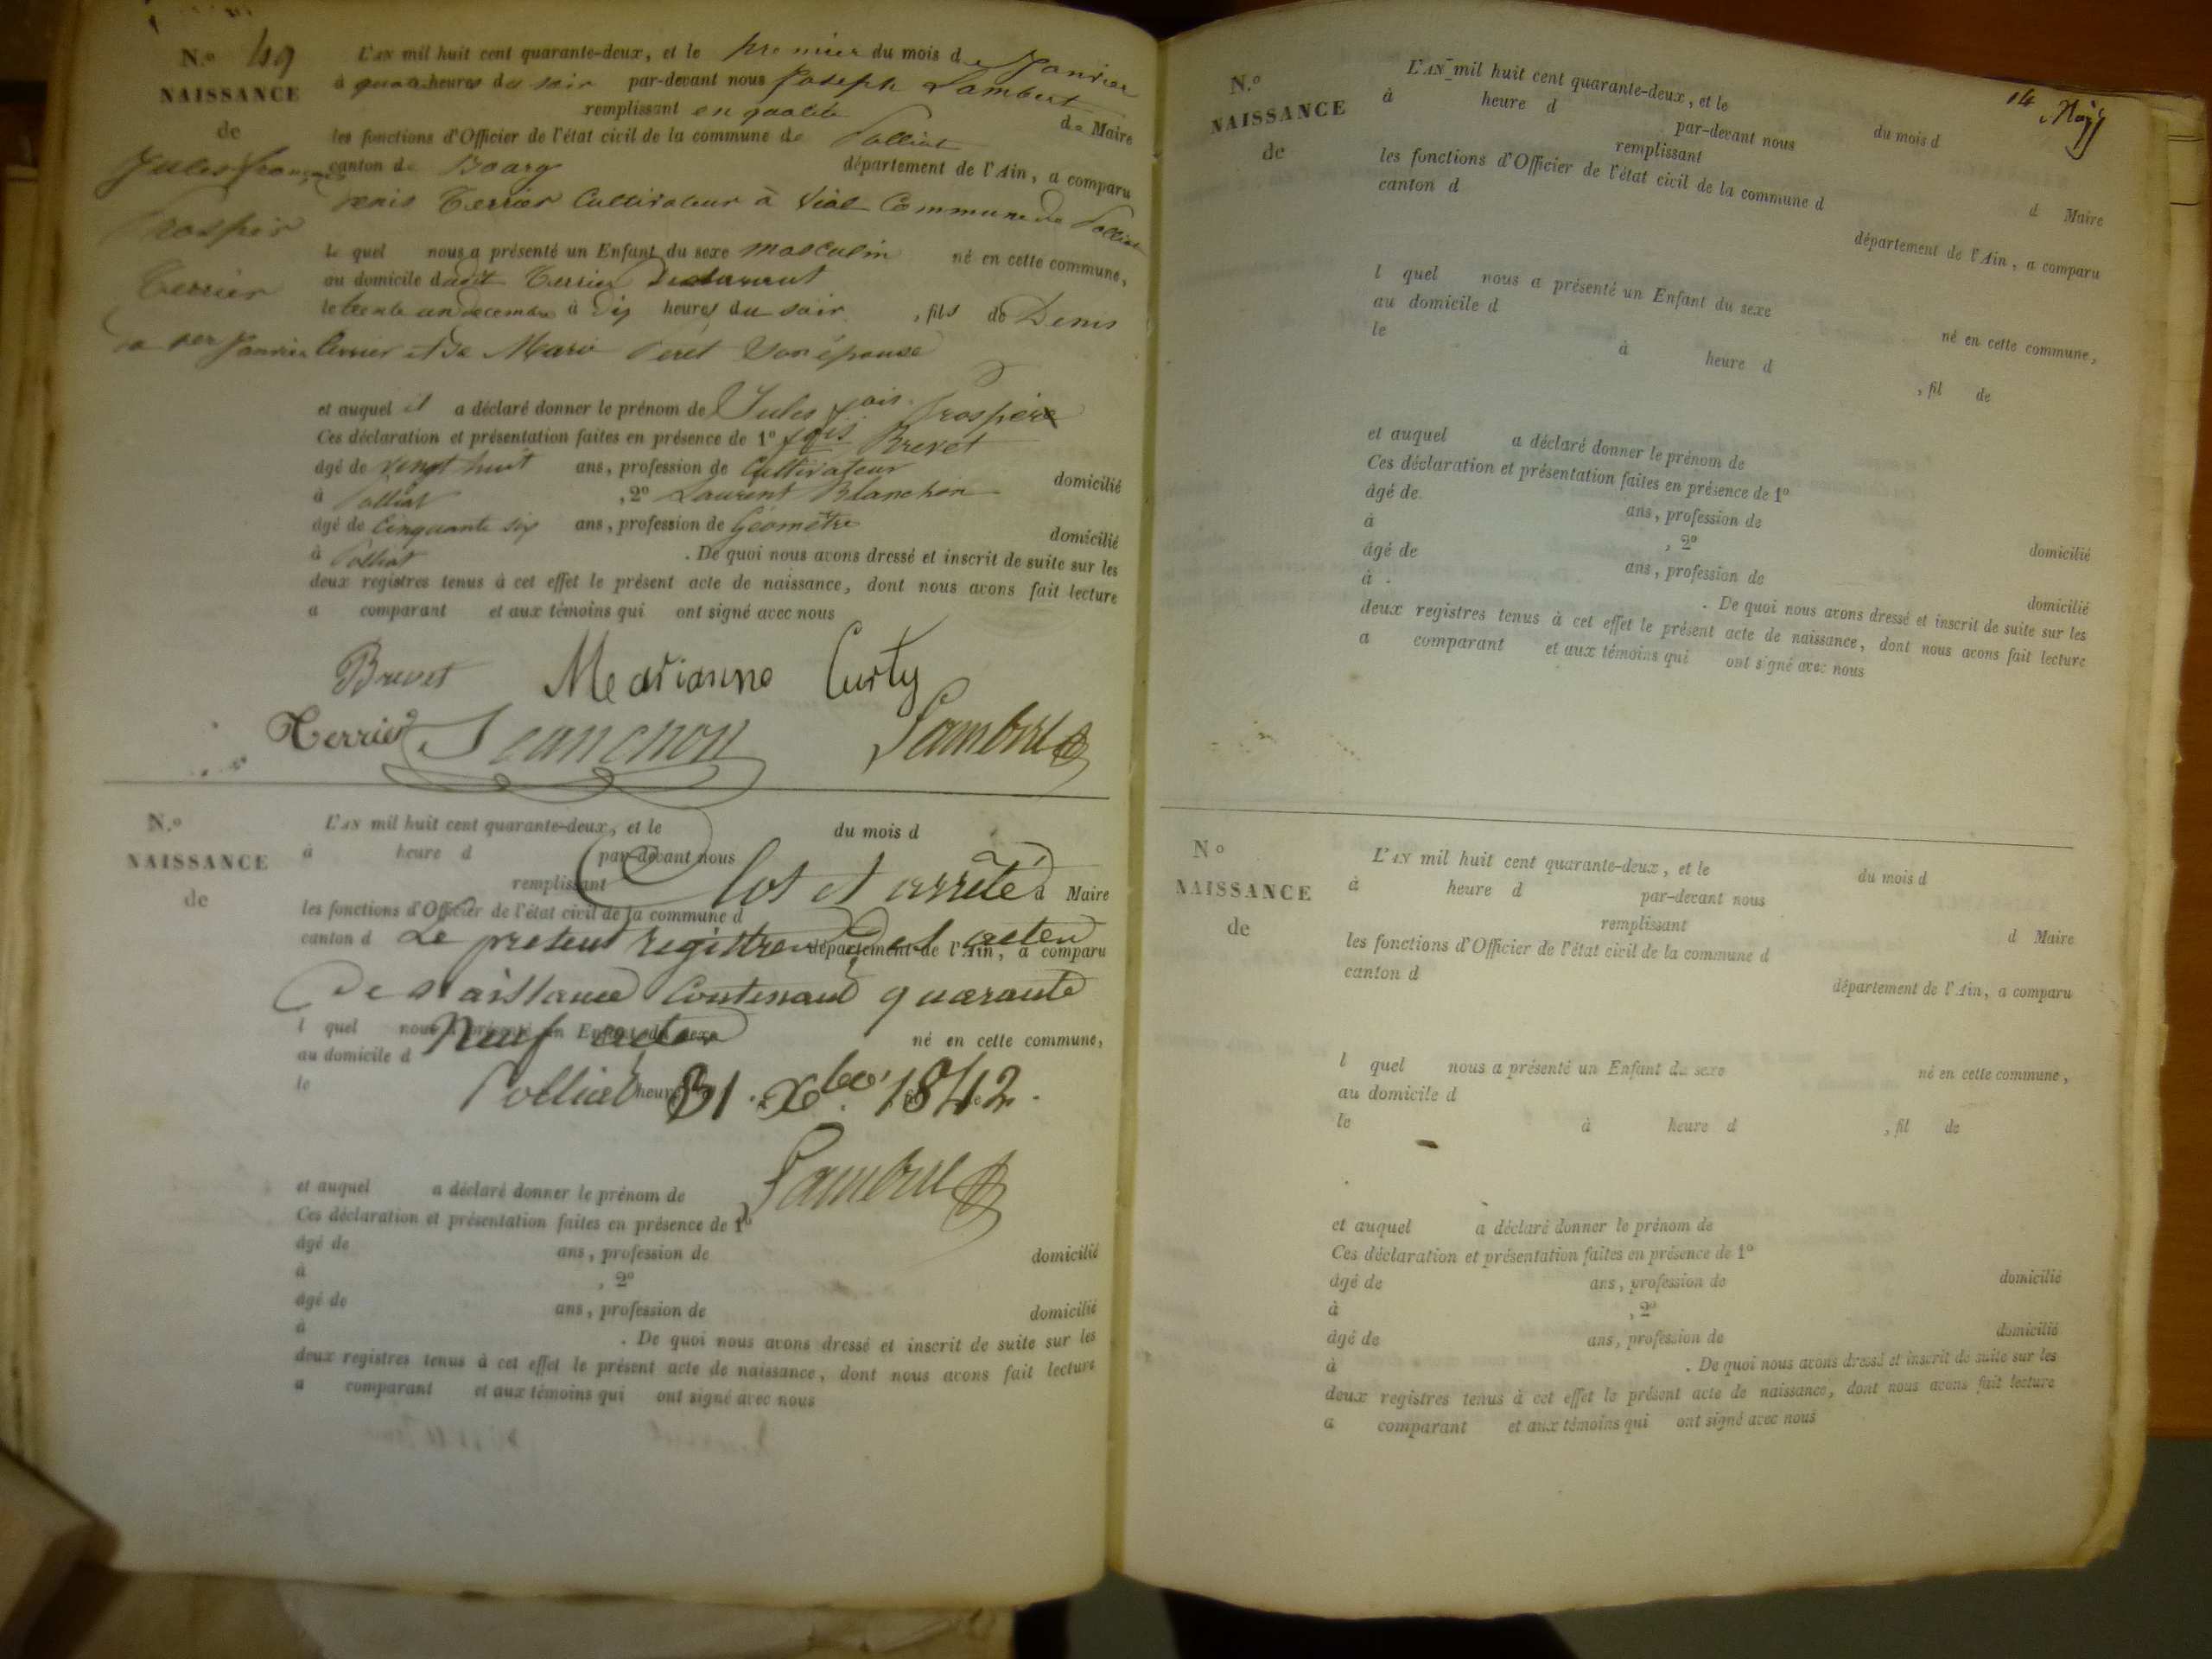 N.º 49
NAISSANCE
de
Jules françois
Prosper
Terrier
du 1er Janvier
L'AN mil huit cent quarante-deux, et le premier du mois de Janvier
à quatre heures du soir par-devant nous Joseph Lambert
remplissant en qualité de Maire
les fonctions d'Officier de l'état civil de la commune de Polliat
canton de Bourg département de l'Ain, a comparu
Denis Terrier Cultivateur à Vial Commune de Polliat
le quel nous a présenté un Enfant du sexe masculin né en cette commune,
au domicile dudit Terrier
le trente un decembre à dix heures du soir, fils de Denis
Terrier et de Marie Peret Son épouse
et auquel il a déclaré donner le prénom de Jules fois Prospère
Ces déclaration et présentation faites en présence de 1º fois Brevet
âgé de vingt huit ans, profession de Cultivateur domicilié
à Polliat, 2º Laurent Blanchon
âgé de Cinquante six ans, profession de Géomètre domicilié
à Polliat. De quoi nous avons dressé et inscrit de suite sur les
deux registres tenus à cet effet le présent acte de naissance, dont nous avons fait lecture
a comparant et aux témoins qui ont signé avec nous
Brevet Marianne Curty
Terrier Lambert
N.º
NAISSANCE
de
L'AN mil huit cent quarante-deux, et le du mois d
à heure d par-devant nous
Clos et arrêté
remplissant d Maire
les fonctions d'Officier de l'état civil de la commune d
Le présent registre des actes
canton d département de l'Ain, a comparu
De Naissance Contenant quarante
l quel nous a présenté un Enfant du sexe né en cette commune,
Neuf actes
au domicile d
le heure
Polliat 31 Xbre 1842.
Lambert
et auquel a déclaré donner le prénom de
Ces déclaration et présentation faites en présence de 1º
âgé de ans, profession de domicilié
à , 2º
âgé de ans, profession de domicilié
à . De quoi nous avons dressé et inscrit de suite sur les
deux registres tenus à cet effet le présent acte de naissance, dont nous avons fait lecture
a comparant et aux témoins qui ont signé avec nous
14
N.º
NAISSANCE
de
L'AN mil huit cent quarante-deux, et le du mois d
à heure d par-devant nous
remplissant d Maire
les fonctions d'Officier de l'état civil de la commune d
canton d département de l'Ain, a comparu
l quel nous a présenté un Enfant du sexe né en cette commune,
au domicile d
le à heure d , fil de
et auquel a déclaré donner le prénom de
Ces déclaration et présentation faites en présence de 1º
âgé de ans, profession de domicilié
à , 2º
âgé de ans, profession de domicilié
à . De quoi nous avons dressé et inscrit de suite sur les
deux registres tenus à cet effet le présent acte de naissance, dont nous avons fait lecture
a comparant et aux témoins qui ont signé avec nous
N º
NAISSANCE
de
L'AN mil huit cent quarante-deux, et le du mois d
à heure d par-devant nous
remplissant d Maire
les fonctions d'Officier de l'état civil de la commune d
canton d département de l'Ain, a comparu
l quel nous a présenté un Enfant du sexe né en cette commune,
au domicile d
le à heure d , fil de
et auquel a déclaré donner le prénom de
Ces déclaration et présentation faites en présence de 1º
âgé de ans, profession de domicilié
à , 2º
âgé de ans, profession de domicilié
à . De quoi nous avons dressé et inscrit de suite sur les
deux registres tenus à cet effet le présent acte de naissance, dont nous avons fait lecture
a comparant et aux témoins qui ont signé avec nous